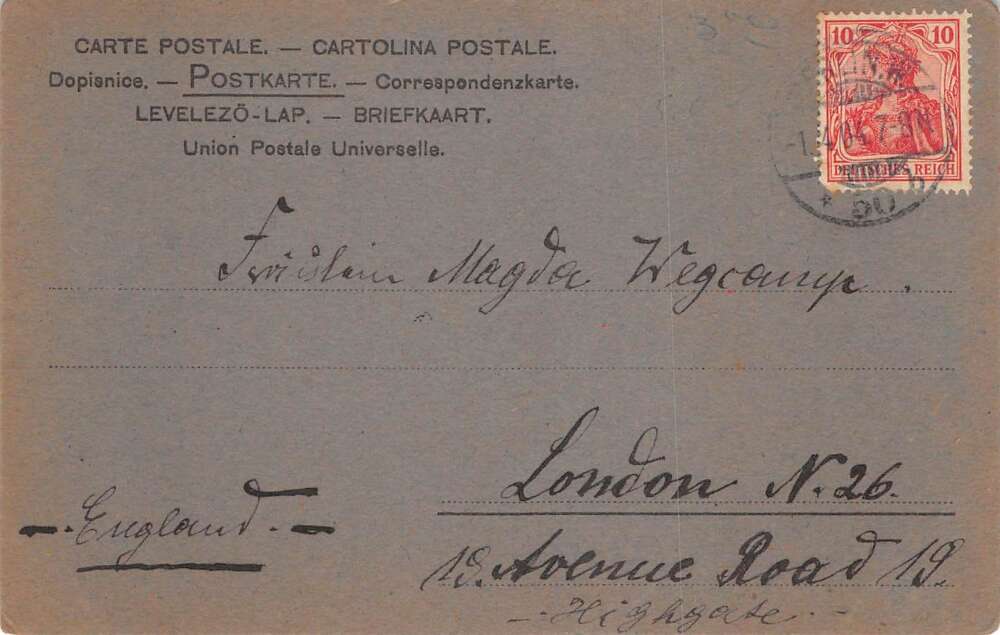 CARTE POSTALE. — CARTOLINA POSTALE.
Dopisnice. — POSTKARTE. — Correspondenzkarte.
LEVELEZŐ-LAP. — BRIEFKAART.
Union Postale Universelle.
10 10
DEUTSCHES REICH
-1.4.04.7-8N.
* 50 b
Fräulein Magda Wegcamp.
London N. 26.
- England. -
19. Avenue Road 19.
- Highgate. -